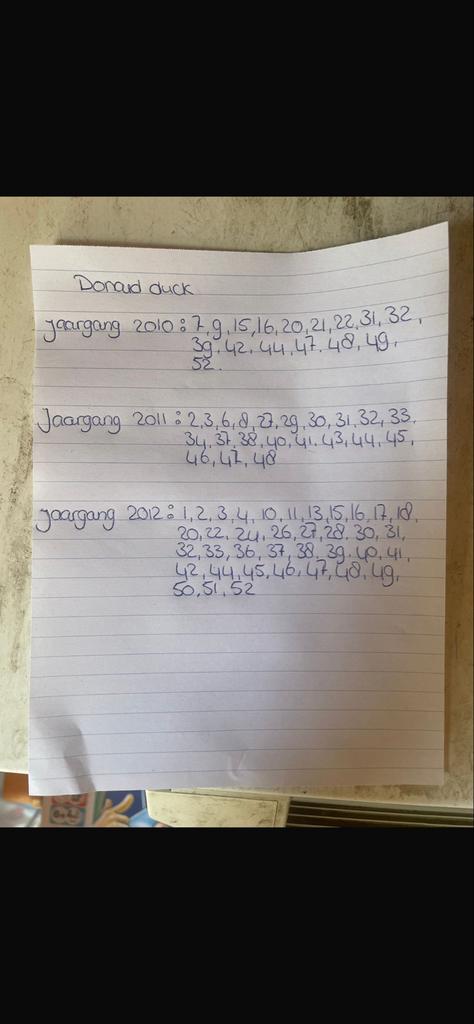 Donald duck
jaargang 2010: 7, 9, 15, 16, 20, 21, 22, 31, 32,
39, 42, 44, 47, 48, 49,
52.
Jaargang 2011: 2, 3, 6, 8, 27, 29, 30, 31, 32, 33,
34, 37, 38, 40, 41, 43, 44, 45,
46, 47, 48
jaargang 2012: 1, 2, 3, 4, 10, 11, 13, 15, 16, 17, 18,
20, 22, 24, 26, 27, 28, 30, 31,
32, 33, 36, 37, 38, 39, 40, 41,
42, 44, 45, 46, 47, 48, 49,
50, 51, 52